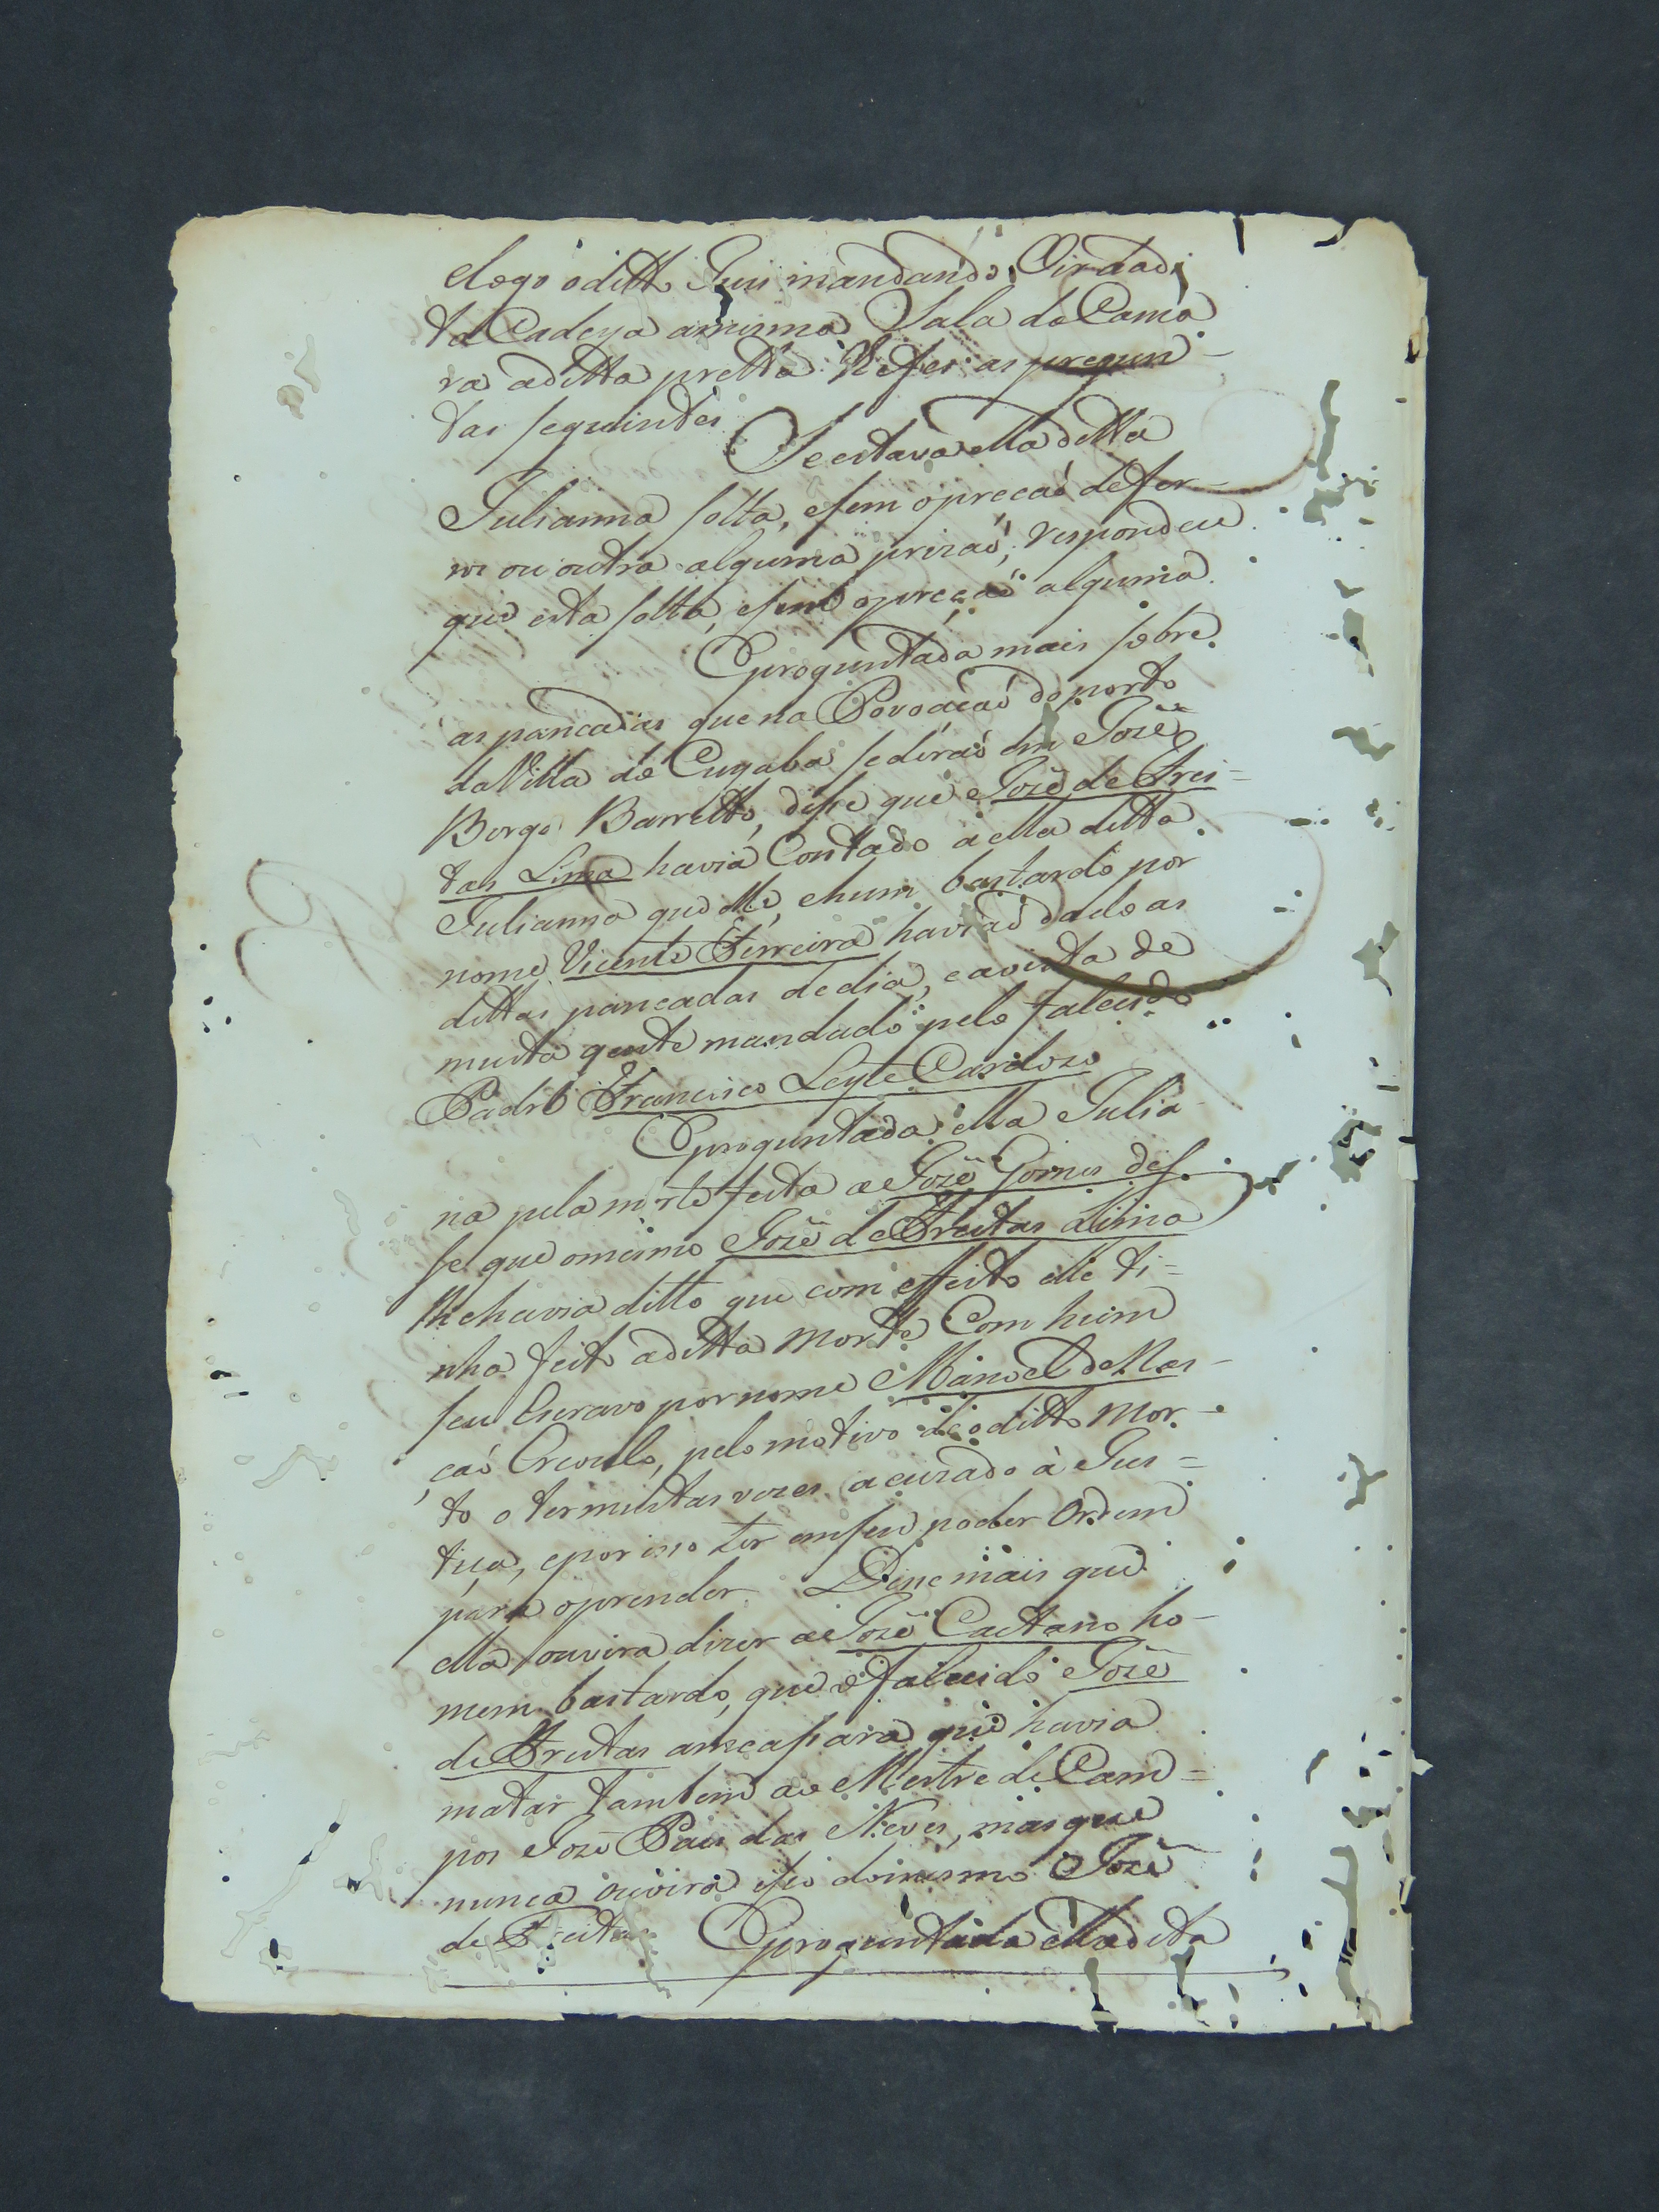 elogo o ditto Juis mandando Vir dadi
ta Cadeya amisma Salla da Cama
ra aditta pretta lhe fes as pregun-
tas seguintes Se estava ella ditta
Julianna solta, esem opreçaõ de fer-
ros ou outra alguma prizaõ; respondeu
que esta solta, esem opreçaõ alguma.
Eproguntada mais sobre
as pancadas que na Povoaçaõ do porto
da Villa do Cuyaba se deraõ em Jozê
Borge Barretto, disse que Jozê de Frei=
tas Lima havia Contado a ella ditta
Julianna que elle, ehum bastardo por
nome Vicente Ferreira haviaõ dado as
dittas pancadas de dia, eavista de
muita gente mandado pelo falecido
Padre Francisco Leyte Cardozo
Eproguntada ella Julia
na pela morte feita a Jozê Gomes dis-
se que omesmo Jozê de Freitas Lima
lhe havia ditto que com effeito elle ti=
nha feito aditta morte Com hum
seu Escravo por nome Manoel de Nas-
çaõ Creoulo, pelo motivo de o ditto mor-
to o ter muitas vezes acuzado à Jus=
tiça, epor isso ter em seu poder Ordem
para oprender. Disse mais que
ella ouvira dizer a Jozê Caetano ho-
mem bastardo, que o falecido Jozê
de Freitas ameassara que havia
matar tambem ao Mestre de Cam=
po Jozê Paes das Neves, mas que
nunca ouvira isso do mesmo Jozê
de Freitas Eproguntada ella dita